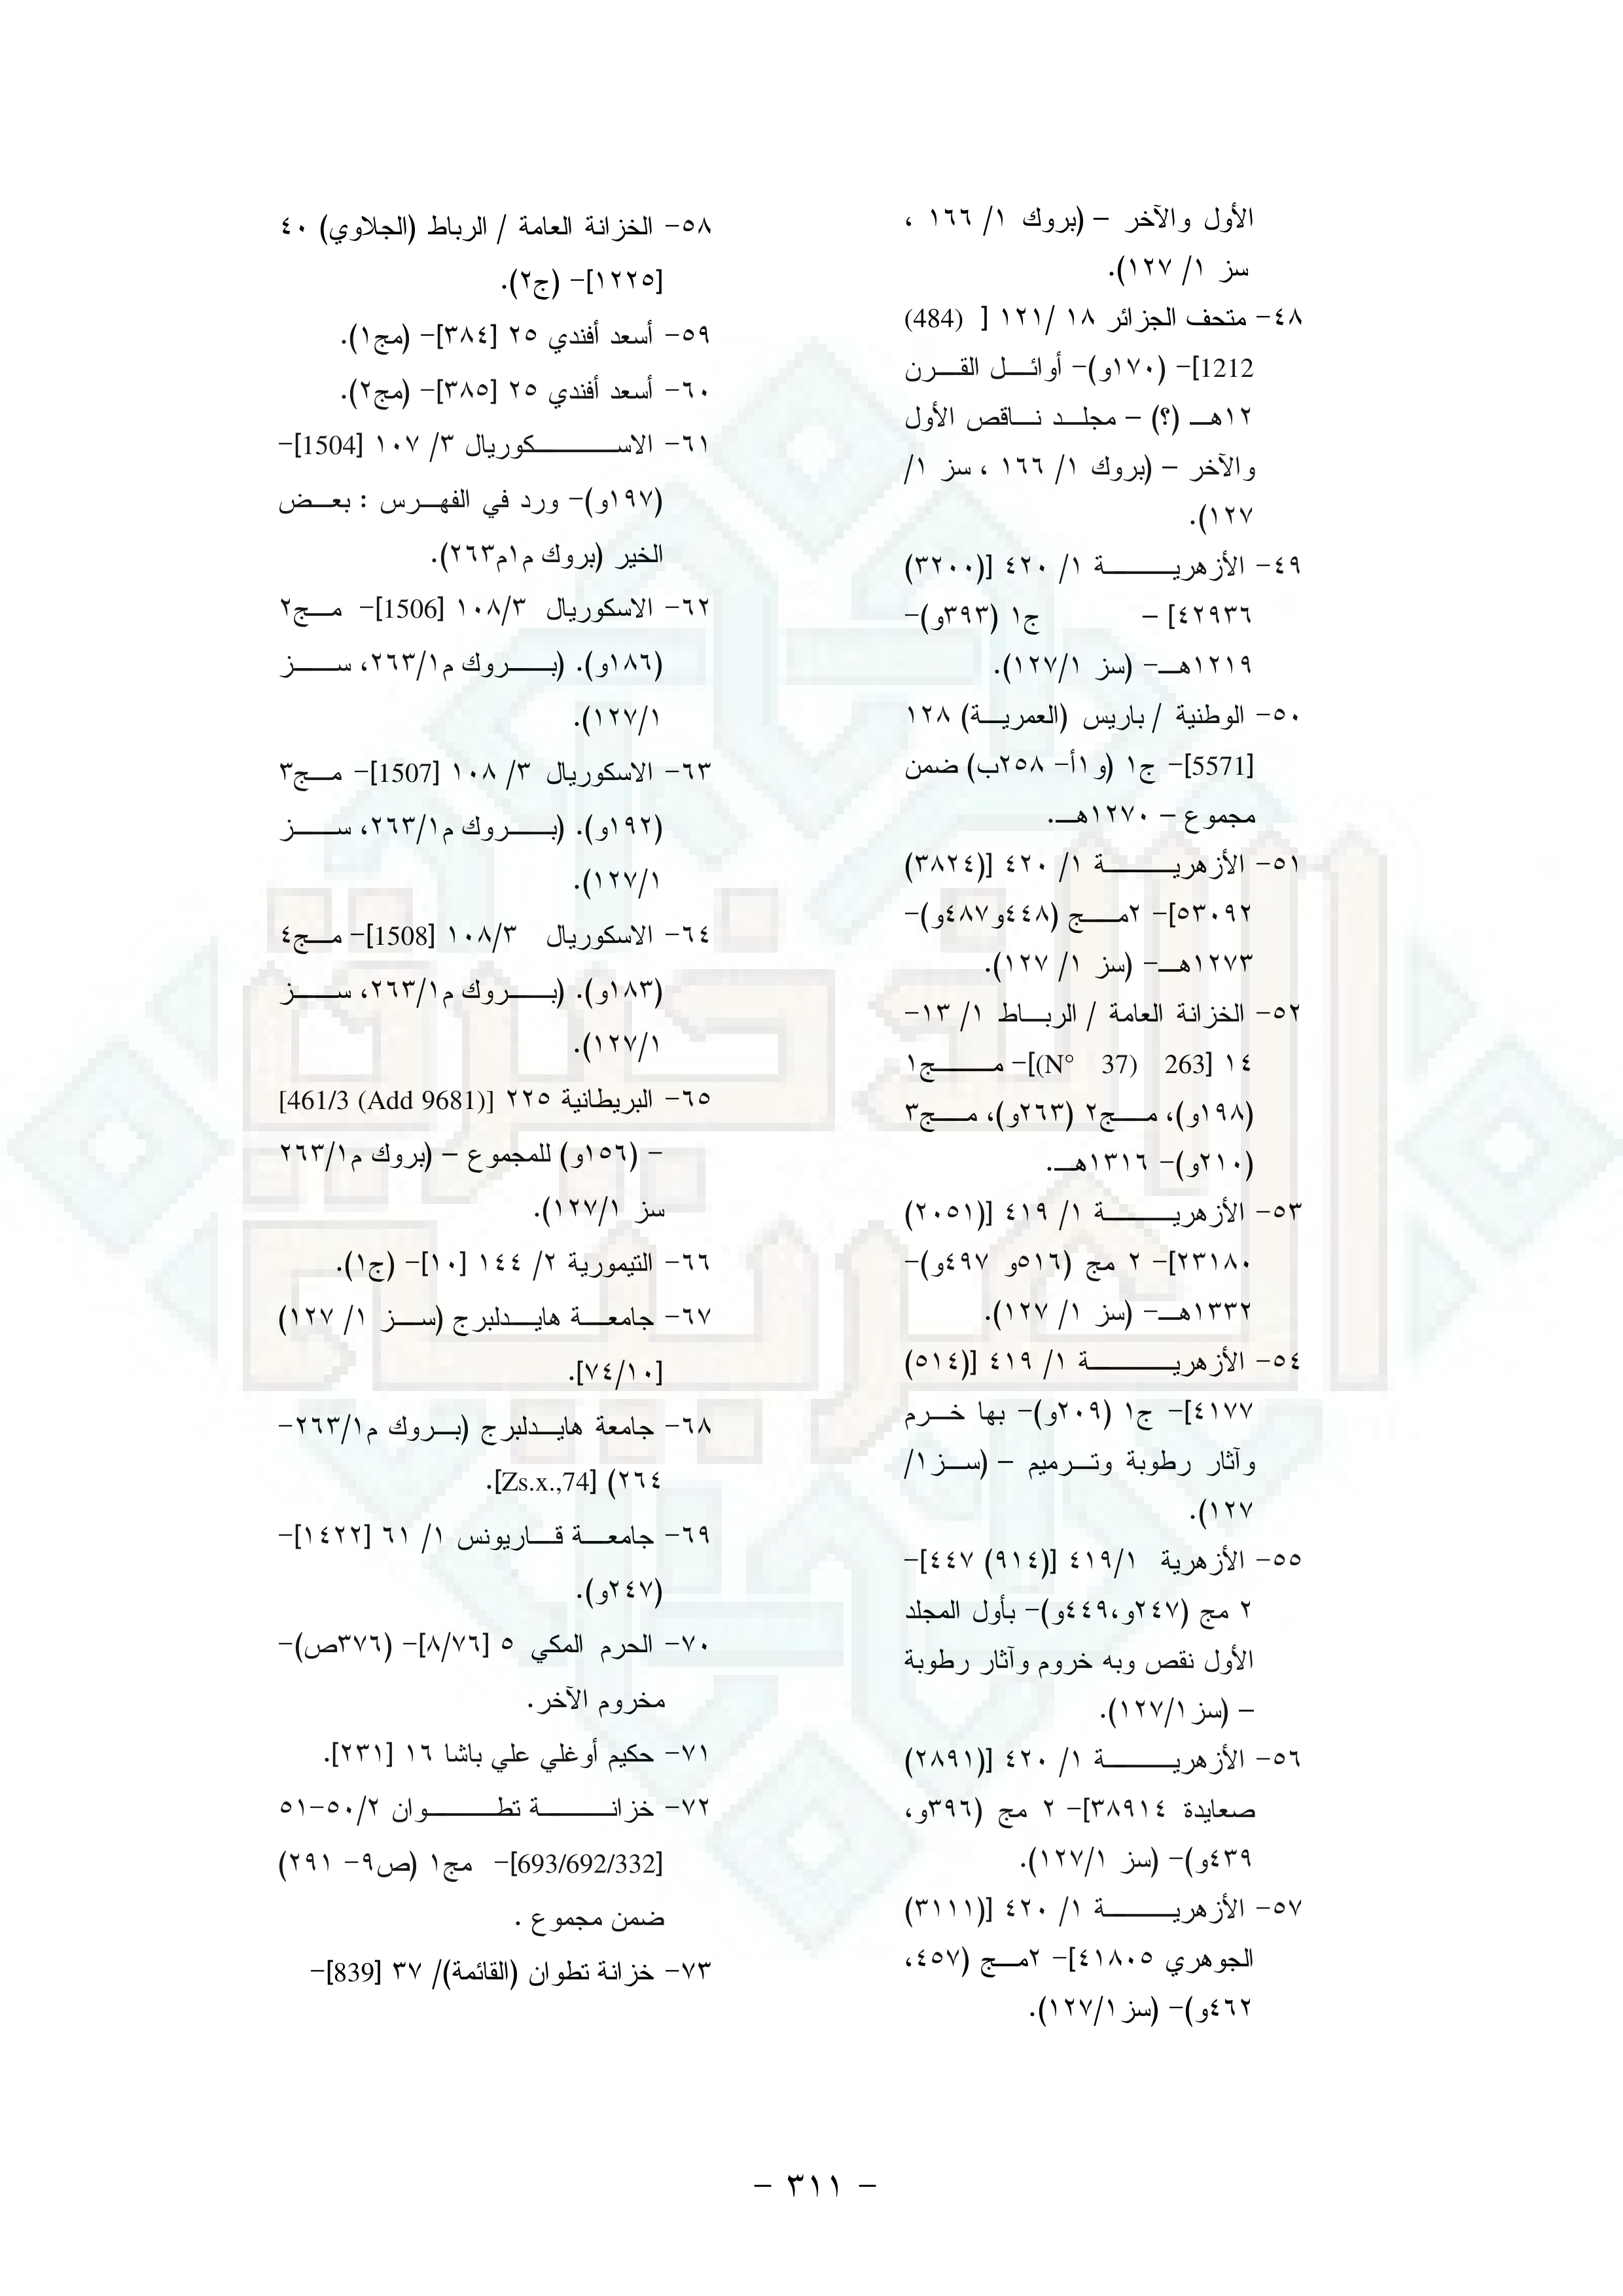 الأول والآخر – (بروك ١/ ١٦٦ ،
سز ١/ ١٢٧).
٤٨- متحف الجزائر ١٨ /١٢١ [ (484)
1212]- (١٧٠و)- أوائل القرن
١٢هـ (؟) – مجلد ناقص الأول
والآخر – (بروك ١/ ١٦٦ ، سز ١/
١٢٧).
٤٩- الأزهرية ١/ ٤٢٠ [(٣٢٠٠)
٤٢٩٣٦] – ج١ (٣٩٣و)-
١٢١٩هـ- (سز ١٢٧/١).
٥٠- الوطنية / باريس (العمرية) ١٢٨
[5571]- ج١ (و١أ- ٢٥٨ب) ضمن
مجموع – ١٢٧٠هـ.
٥١- الأزهرية ١/ ٤٢٠ [(٣٨٢٤)
٥٣٠٩٢]- ٢مج (٤٤٨و٤٨٧و)-
١٢٧٣هـ- (سز ١/ ١٢٧).
٥٢- الخزانة العامة / الرباط ١/ ١٣-
١٤ [263 (N° 37)]- مج١
(١٩٨و)، مج٢ (٢٦٣و)، مج٣
(٢١٠و)- ١٣١٦هـ.
٥٣- الأزهرية ١/ ٤١٩ [(٢٠٥١)
٢٣١٨٠]- ٢ مج (٥١٦و ٤٩٧و)-
١٣٣٢هـ- (سز ١/ ١٢٧).
٥٤- الأزهرية ١/ ٤١٩ [(٥١٤)
٤١٧٧]- ج١ (٢٠٩و)- بها خرم
وآثار رطوبة وترميم – (سز١/
١٢٧).
٥٥- الأزهرية ٤١٩/١ [(٩١٤) ٤٤٧]-
٢ مج (٢٤٧و،٤٤٩و)- بأول المجلد
الأول نقص وبه خروم وآثار رطوبة
– (سز١٢٧/١).
٥٦- الأزهرية ١/ ٤٢٠ [(٢٨٩١)
صعايدة ٣٨٩١٤]- ٢ مج (٣٩٦و،
٤٣٩و)- (سز ١٢٧/١).
٥٧- الأزهرية ١/ ٤٢٠ [(٣١١١)
الجوهري ٤١٨٠٥]- ٢مج (٤٥٧،
٤٦٢و)- (سز١٢٧/١).
٥٨- الخزانة العامة / الرباط (الجلاوي) ٤٠
[١٢٢٥]- (ج٢).
٥٩- أسعد أفندي ٢٥ [٣٨٤]- (مج١).
٦٠- أسعد أفندي ٢٥ [٣٨٥]- (مج٢).
٦١- الاسكوريال ٣/ ١٠٧ [1504]-
(١٩٧و)- ورد في الفهرس : بعض
الخير (بروك م١م٢٦٣).
٦٢- الاسكوريال ١٠٨/٣ [1506]- مج٢
(١٨٦و). (بروك م٢٦٣/١، سز
١٢٧/١).
٦٣- الاسكوريال ٣/ ١٠٨ [1507]- مج٣
(١٩٢و). (بروك م٢٦٣/١، سز
١٢٧/١).
٦٤- الاسكوريال ١٠٨/٣ [1508]- مج٤
(١٨٣و). (بروك م٢٦٣/١، سز
١٢٧/١).
٦٥- البريطانية ٢٢٥ [461/3 (Add 9681)]
– (١٥٦و) للمجموع – (بروك م٢٦٣/١
سز ١٢٧/١).
٦٦- التيمورية ٢/ ١٤٤ [١٠]- (ج١).
٦٧- جامعة هايدلبرج (سز ١/ ١٢٧)
[٧٤/١٠].
٦٨- جامعة هايدلبرج (بروك م٢٦٣/١-
٢٦٤) [Zs.x.,74].
٦٩- جامعة قاريونس ١/ ٦١ [١٤٢٢]-
(٢٤٧و).
٧٠- الحرم المكي ٥ [٨/٧٦]- (٣٧٦ص)-
مخروم الآخر.
٧١- حكيم أوغلي علي باشا ١٦ [٢٣١].
٧٢- خزانة تطوان ٥٠/٢-٥١
[693/692/332]- مج١ (ص٩- ٢٩١)
ضمن مجموع .
٧٣- خزانة تطوان (القائمة)/ ٣٧ [839]-
- ٣١١ -